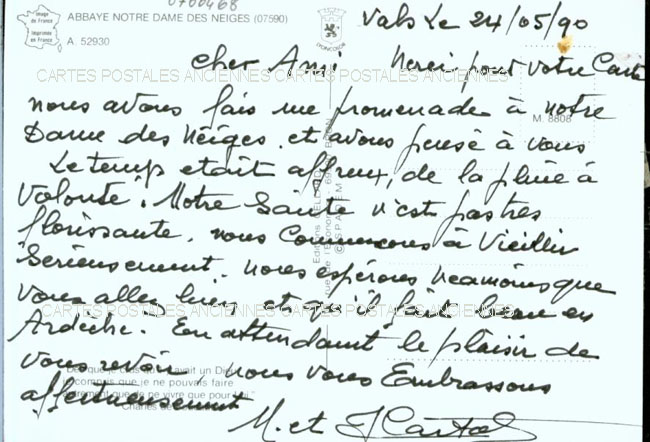 0700468
Image de France
Imprimée en France
ABBAYE NOTRE DAME DES NEIGES (07590)
A 52930
DRAEGER
Vals Le 24/05/90
Cher Ami Merci pour votre Carte
CARTES POSTALES ANCIENNES CARTES POSTALES ANCIENNES CARTES POSTALES ANCIENNES
nous avons fais une promenade à notre
M 8808
Dame des Neiges. et avons pensé à vous
Le temps etait affreux, de la pluie à
Volonté. Notre Sante n'est pas tres
florissante. nous Commencons à Vieillir
Serieusement. nous espérons neamoins que
vous allez bien et qu'il fait beau en
Ardèche. En attendant le plaisir de
vous revoir, nous vous Embrassons
affectueusement
"Dès que je crus qu'il y avait un Dieu,
je compris que je ne pouvais faire
autrement que de ne vivre que pour lui."
Charles de
M. et